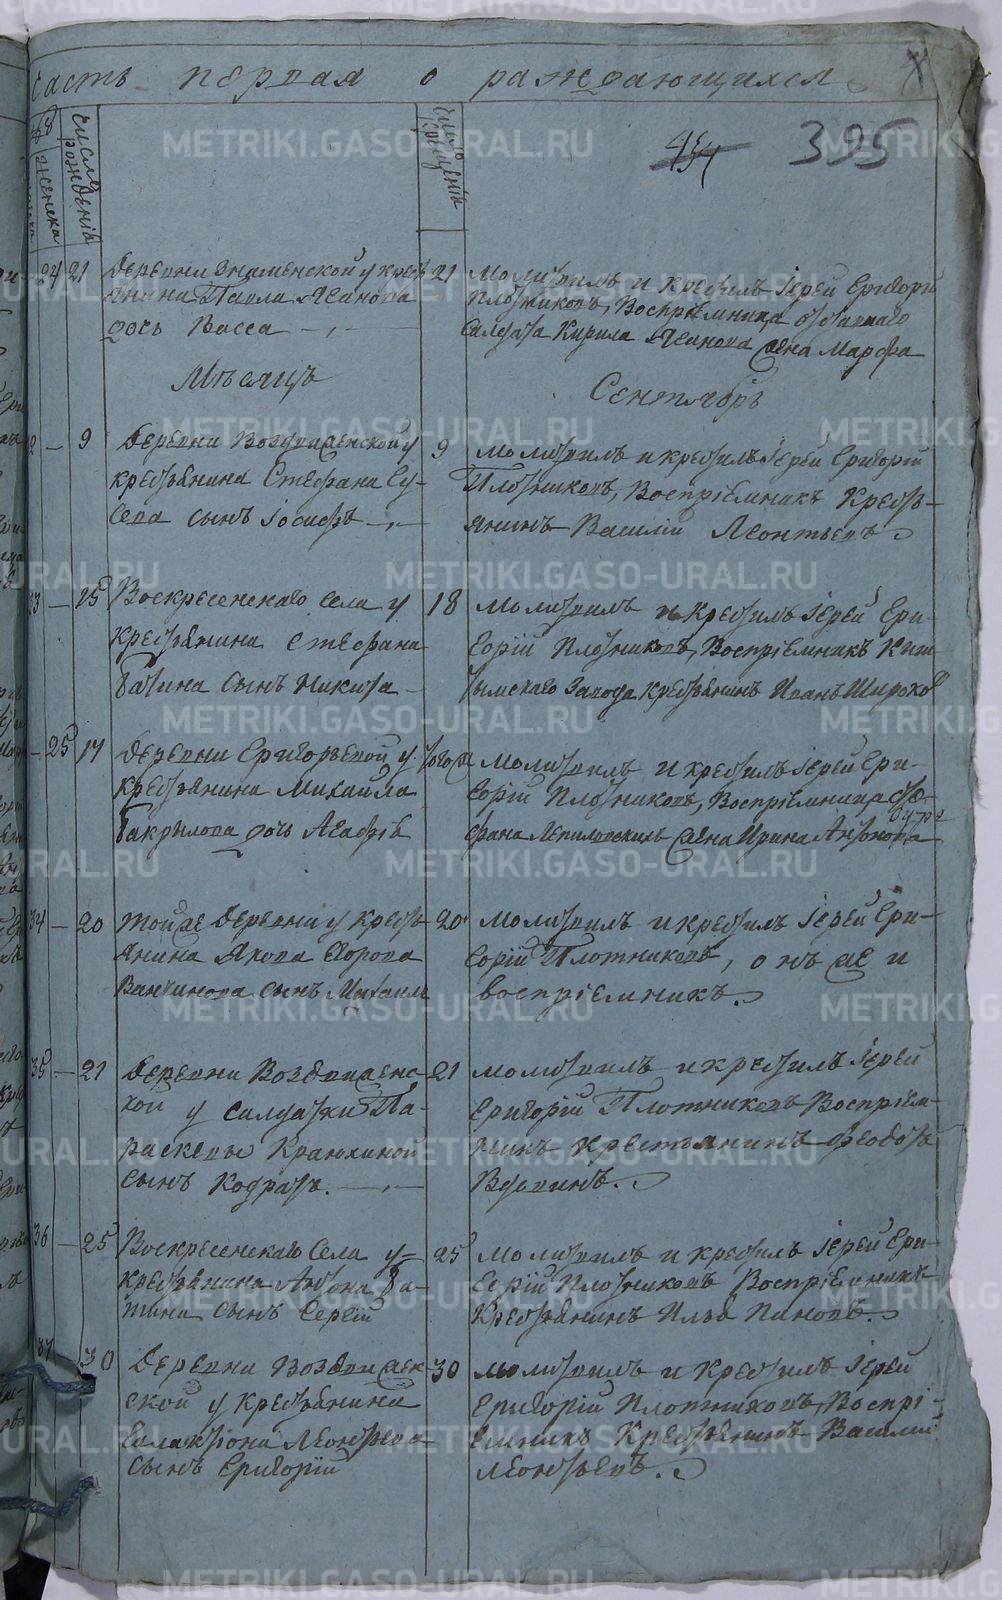 часть первая о раждающихся
454 395
число рожденій
женска
число крещеній
24 21 Деревни Знаменской у крестьянина Павла Иванова дочь Васса
21 Молитвилъ и крестилъ Іерей Григорій
Плотниковъ, Воспріемница отставнаго
Салдата Кирила Иванова жена Марфа
Мѣсяцъ Сентябрь
9 Деревни Воздвиженской у
крестьянина Стефана Су-
сын Іосифъ
9 Молитвилъ и крестилъ Іерей Григорій
Плотниковъ, Воспріемникъ Кресть-
янинъ Василій Леонтьевъ
33 15 Воскресенскаго Села у
крестьянина Стефана
Батина сынъ Никита
18 Молитвилъ и крестилъ Іерей Гри-
горій Плотниковъ, Воспріемникъ Кыш-
тымскаго Завода крестьянинъ Иванъ Широко
25 17 Деревни Григорьевой у
крестьянина Михаила
Бакрылова дочь Агафіѣ
тогож Молитвилъ и крестилъ Іерей Гри-
горій Плотниковъ, Воспріемница
жена Ирина Антонова
34 20 Тойже Деревни у кресть-
янина Якова Егорова
сынъ Михаилъ
20 Молитвилъ и крестилъ Іерей Гри-
горій Плотниковъ, онъ же и
воспріемникъ.
35 21 Деревни Воздвиженс-
кой у салдатки Па-
раскевы Краюхиной
сынъ Кодратъ.
21 Молитвилъ и крестилъ Іерей
Григорій Плотниковъ Воспріем-
никъ Крестьянинъ
Вдовинъ.
36 25 Воскресенскаго Села у
крестьянина Антона Ба-
тина сынъ Сергій
25 Молитвилъ и крестилъ Іерей Гри-
горій Плотниковъ Воспріемникъ
Крестьянинъ Илья Пановъ.
37 30 Деревни Воздвижен-
ской у Крестьянина
Галактіона Леонтьева
сынъ Григорій
30 Молитвилъ и крестилъ Іерей
Григорій Плотниковъ, Воспрі-
емникъ Крестьянинъ Василій
Леонтьевъ.
METRIKI.GASO-URAL.RU